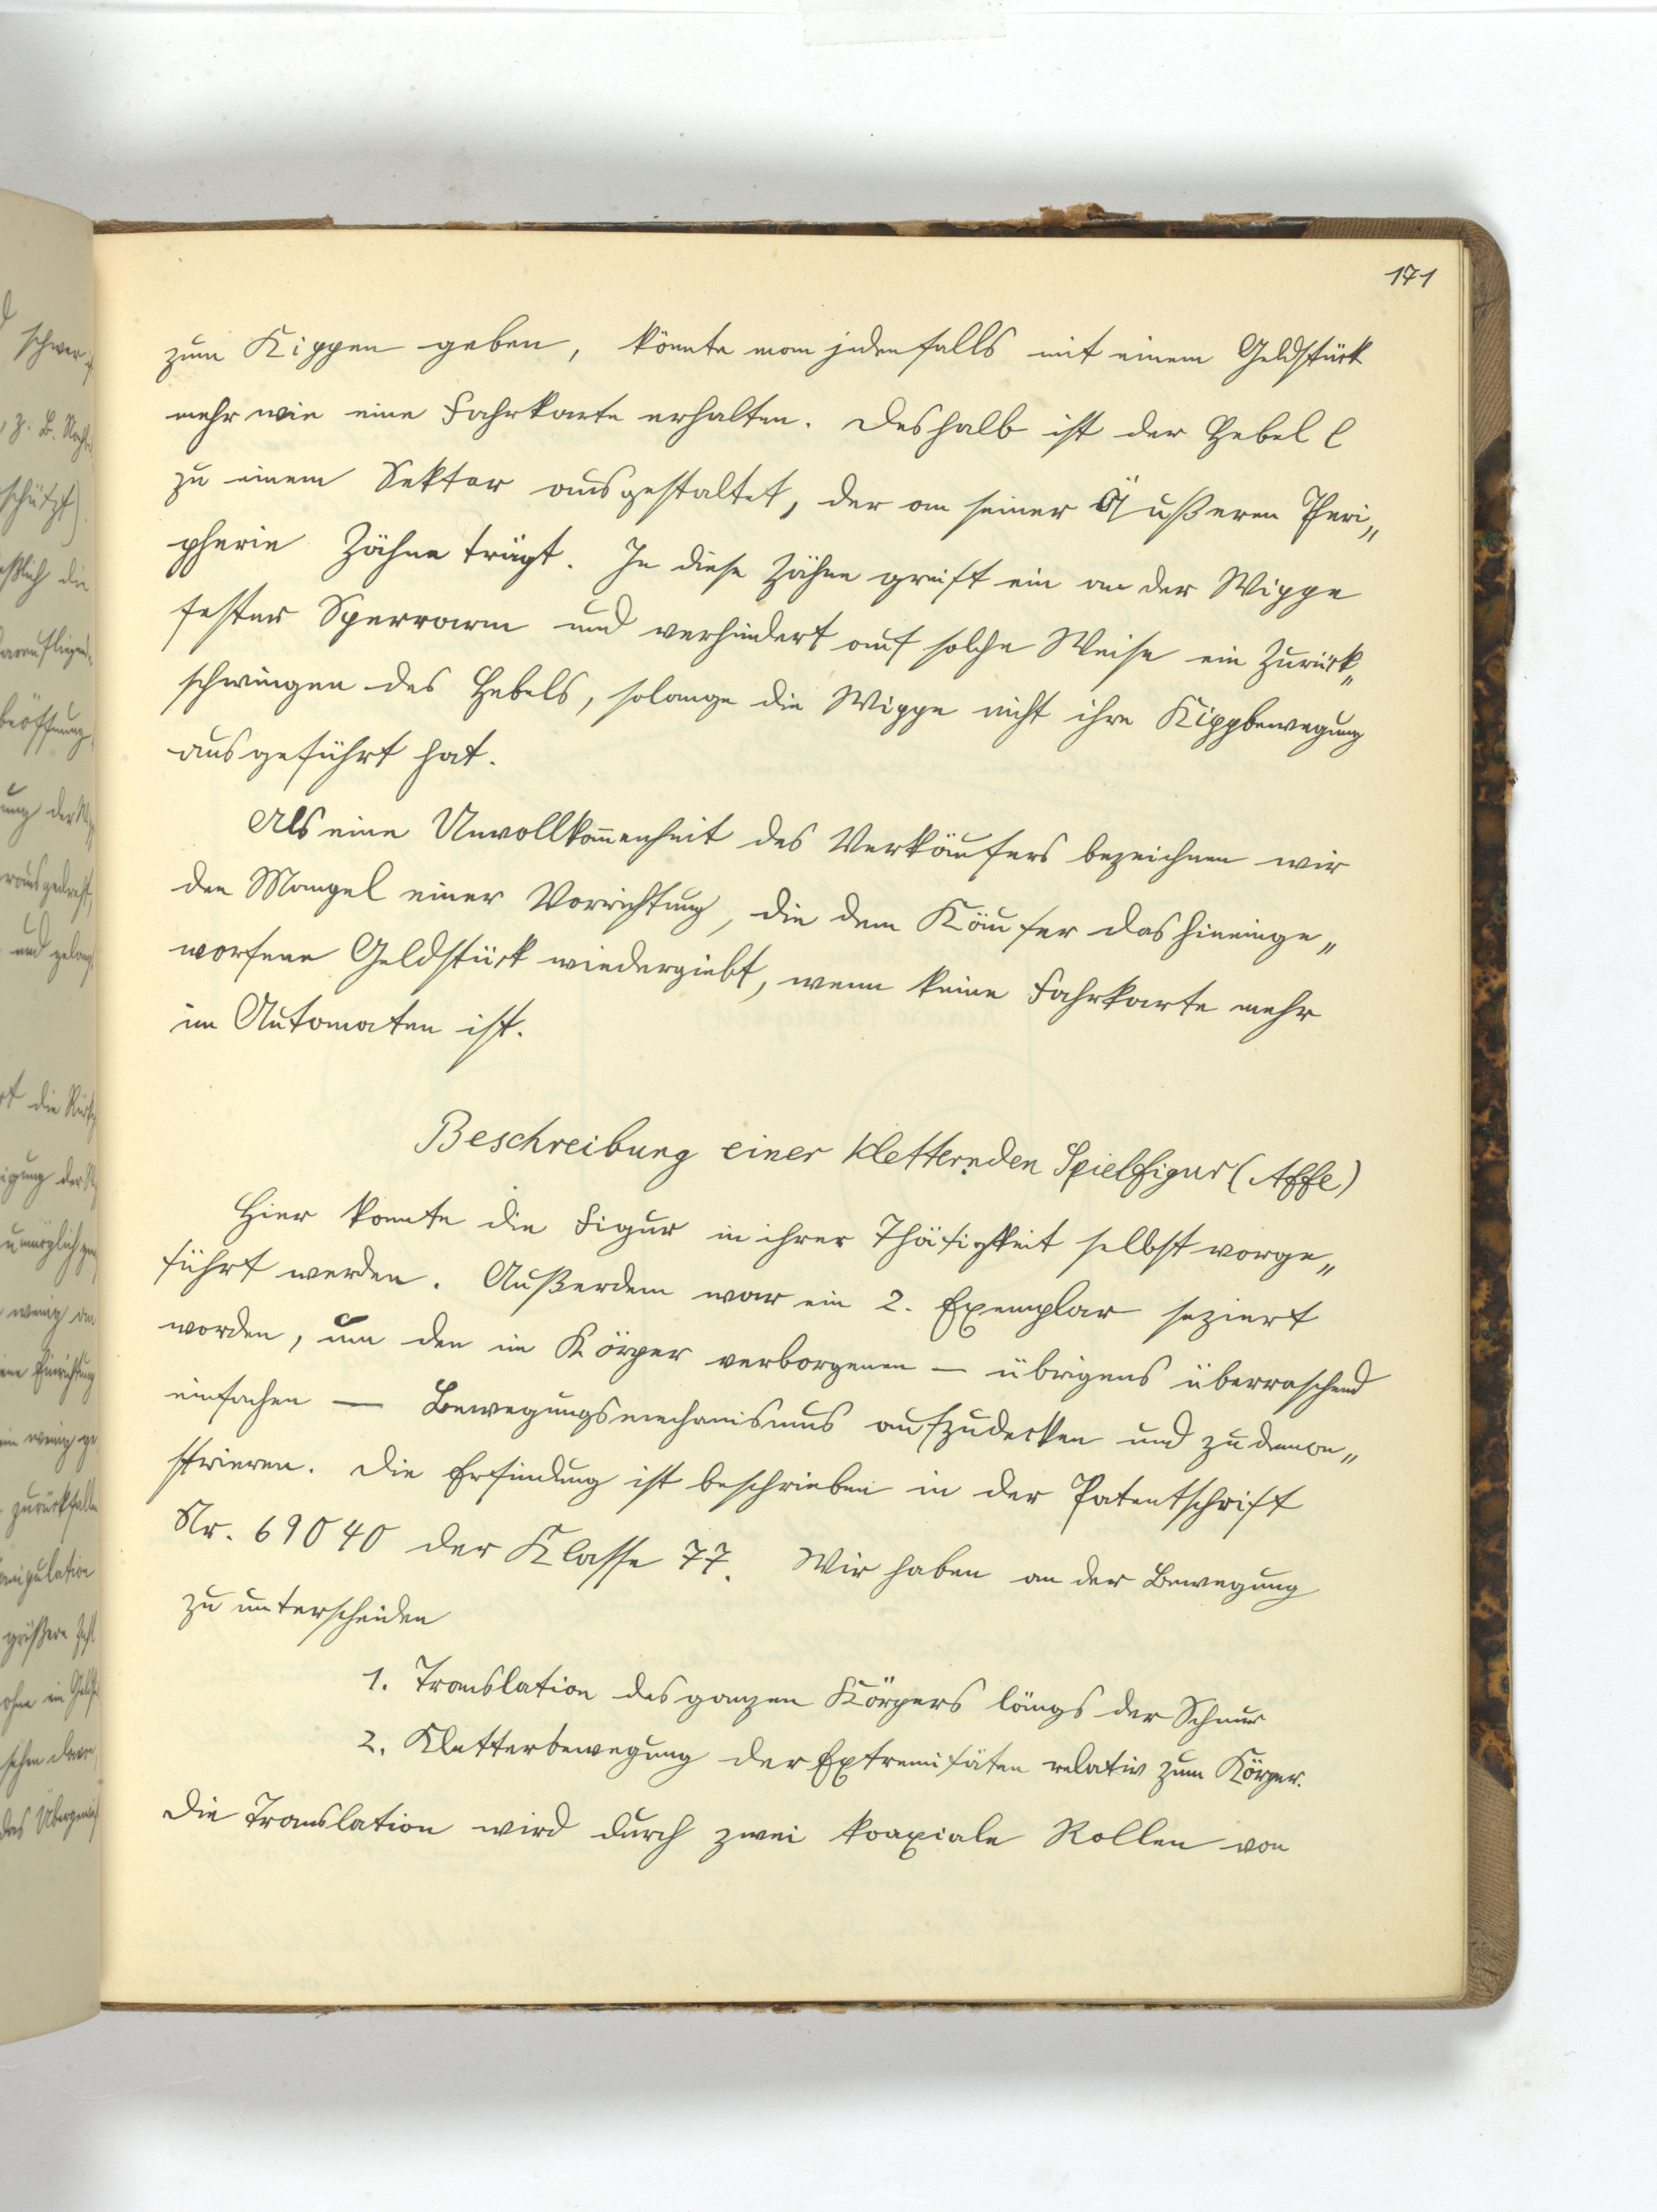 171
zum Kippen geben, könnte man jedenfalls mit einem Geldstück
mehr wie eine Fahrkarte erhalten. Deshalb ist der Hebel l
zu einem Sektor ausgestaltet, der an seiner Äußeren Peri„
pherie Zähne trägt. In diese Zähne greift ein an der Wippe
fester Sperrarm und verhindert auf solche Weise ein Zurück„
schwingen des Hebels, solange die Wippe nicht ihre Kippbewegung
ausgeführt hat.
Als eine Unvollkom̅enheit des Verkäufers bezeichnen wir
den Mangel einer Vorrichtung, die dem Käufer das hineinge„
worfene Geldstück wiedergiebt, wenn keine Fahrkarte mehr
im Automaten ist.
Beschreibung einer kletternden Spielfigur (Affe)
Hier konnte die Figur in ihrer Thätigkeit selbst vorge„
führt werden. Außerdem war ein 2. Exemplar seziert
worden, um den im Körper verborgenen — übrigens überraschend
einfachen — Bewegungsmechanismus aufzudecken und zu demon„
strieren. Die Erfindung ist beschrieben in der Patentschrift
Nr. 69040 der Klasse 77. Wir haben an der Bewegung
zu unterscheiden
1. Translation des ganzen Körpers längs der Schnur
2. Kletterbewegung der Extremitäten relativ zum Körper.
Die Translation wird durch zwei koaxiale Rollen von